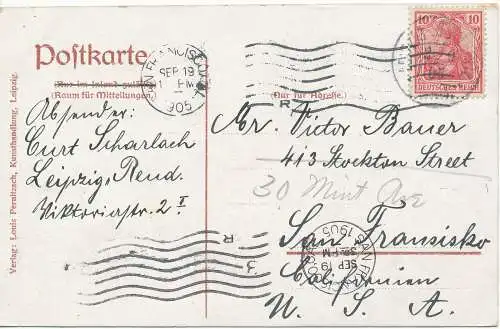 Postkarte
(Nur im Inland gültig)
(Raum für Mitteilungen.)
(Nur für Adresse.)
SAN FRANCISCO, CAL.
SEP 19
1 - PM
1905
10 10
DEUTSCHES REICH
Absender:
Curt Scharlach
Leipzig, Reud.
Viktoriastr. 2 I
Mr. Victor Bauer
413 Stockton Street
30 Mint Ave
San Fransisko
Californien
U. S. A.
R
3
SEP 19
1905
Verlag: Louis Pernitzsch, Kunsthandlung, Leipzig.